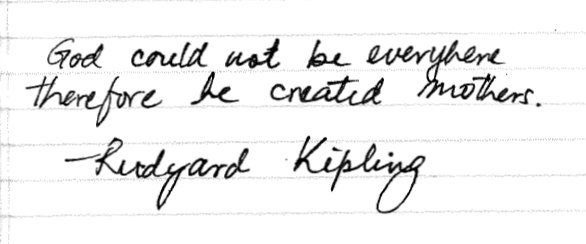 God could not be everyhere
therefore he created mothers.
-Rudyard Kipling